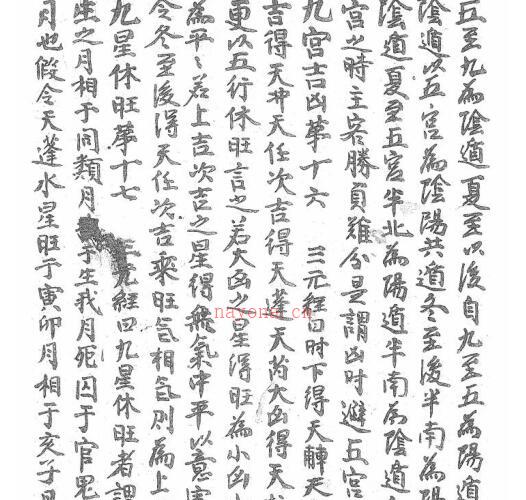 五至九為陰遁夏至以後自九至五為陽遁
陰遁以五宮為陰陽共遁冬至後半南為陽
陰遁夏至五宮半北為陽遁半南為陰遁
宮之時主客勝負難分是謂凶时避五宮
九宮吉凶第十六 三元經曰时下得天輔天
吉得天冲天任次吉得天蓬天芮大凶得天
更以五行休旺言之若大凶之星得旺為小凶
為平〻若上吉次吉之星得無氣中平以意
令冬至後得天任次吉乘旺气相气則為上
九星休旺第十七 三元經曰九星休旺者謂
生之月相于同類月 于生我月死囚于官鬼
月也假令天蓬水星旺于寅卯月相于亥子月
nayona.cn